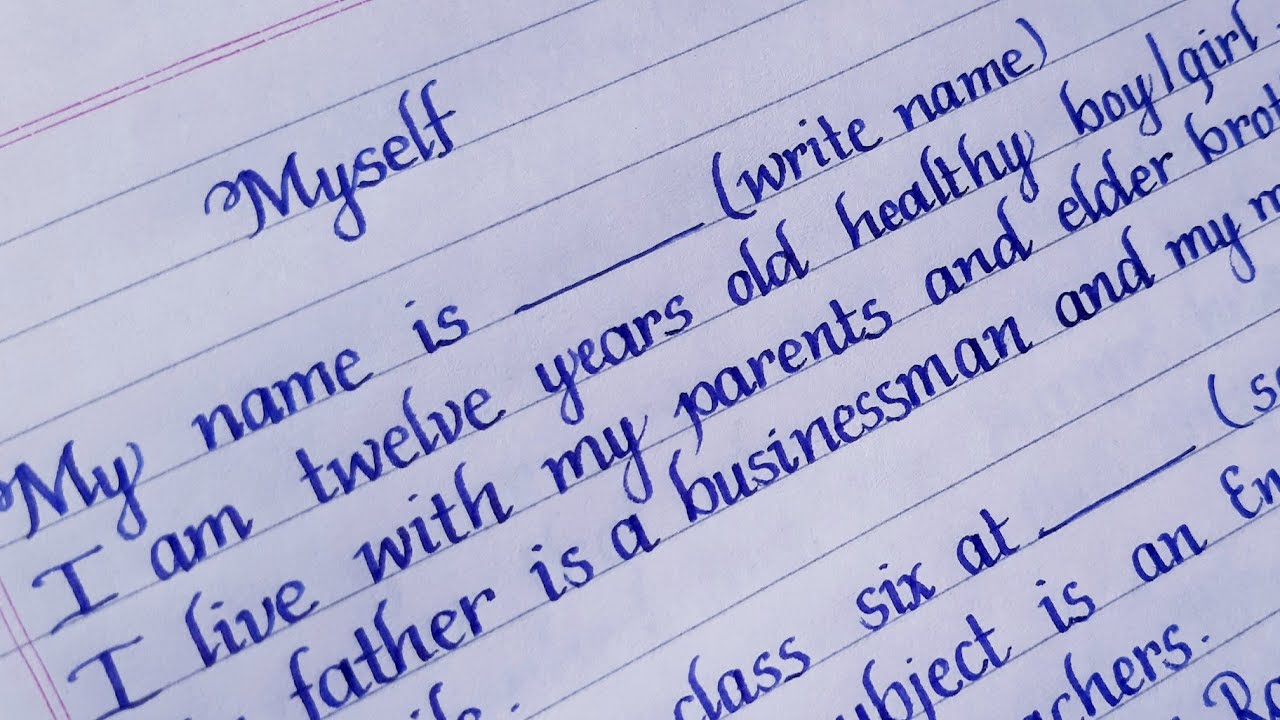 Myself
My name is ______ (write name)
I am twelve years old healthy boy/girl.
I live with my parents and elder
father is a businessman and my
class six at ______
is an